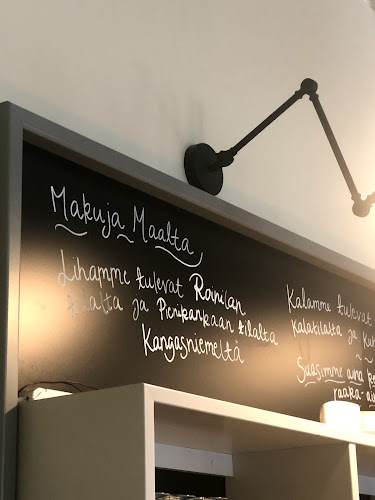 Makuja Maalta
Lihamme tulevat Roinilan
tilalta ja Pienkankaan tilalta
Kangasniemeltä
Kalamme tulevat
kalatilalta ja
Suosimme aina
raaka-